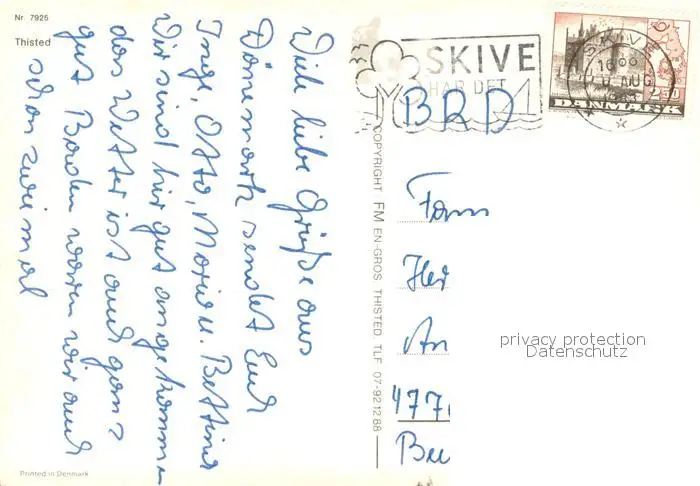 Nr. 7925
Thisted
Viele liebe Grüße aus
Dänemark sendet Euch
Inge, Otto, Mario u. Bettina
Wir sind hir gut angekommen
das Wetter ist auch ganz
gut Baden waren wir auch
schon zweimal
Printed in Denmark
COPYRIGHT FM EN-GROS THISTED. TLF 07-92 12 88
SKIVE
HAR DET
SKIVE
16
AUG
2.50
DANMARK
BRD
Fam
Her
An
477
Privacy protection
Datenschutz